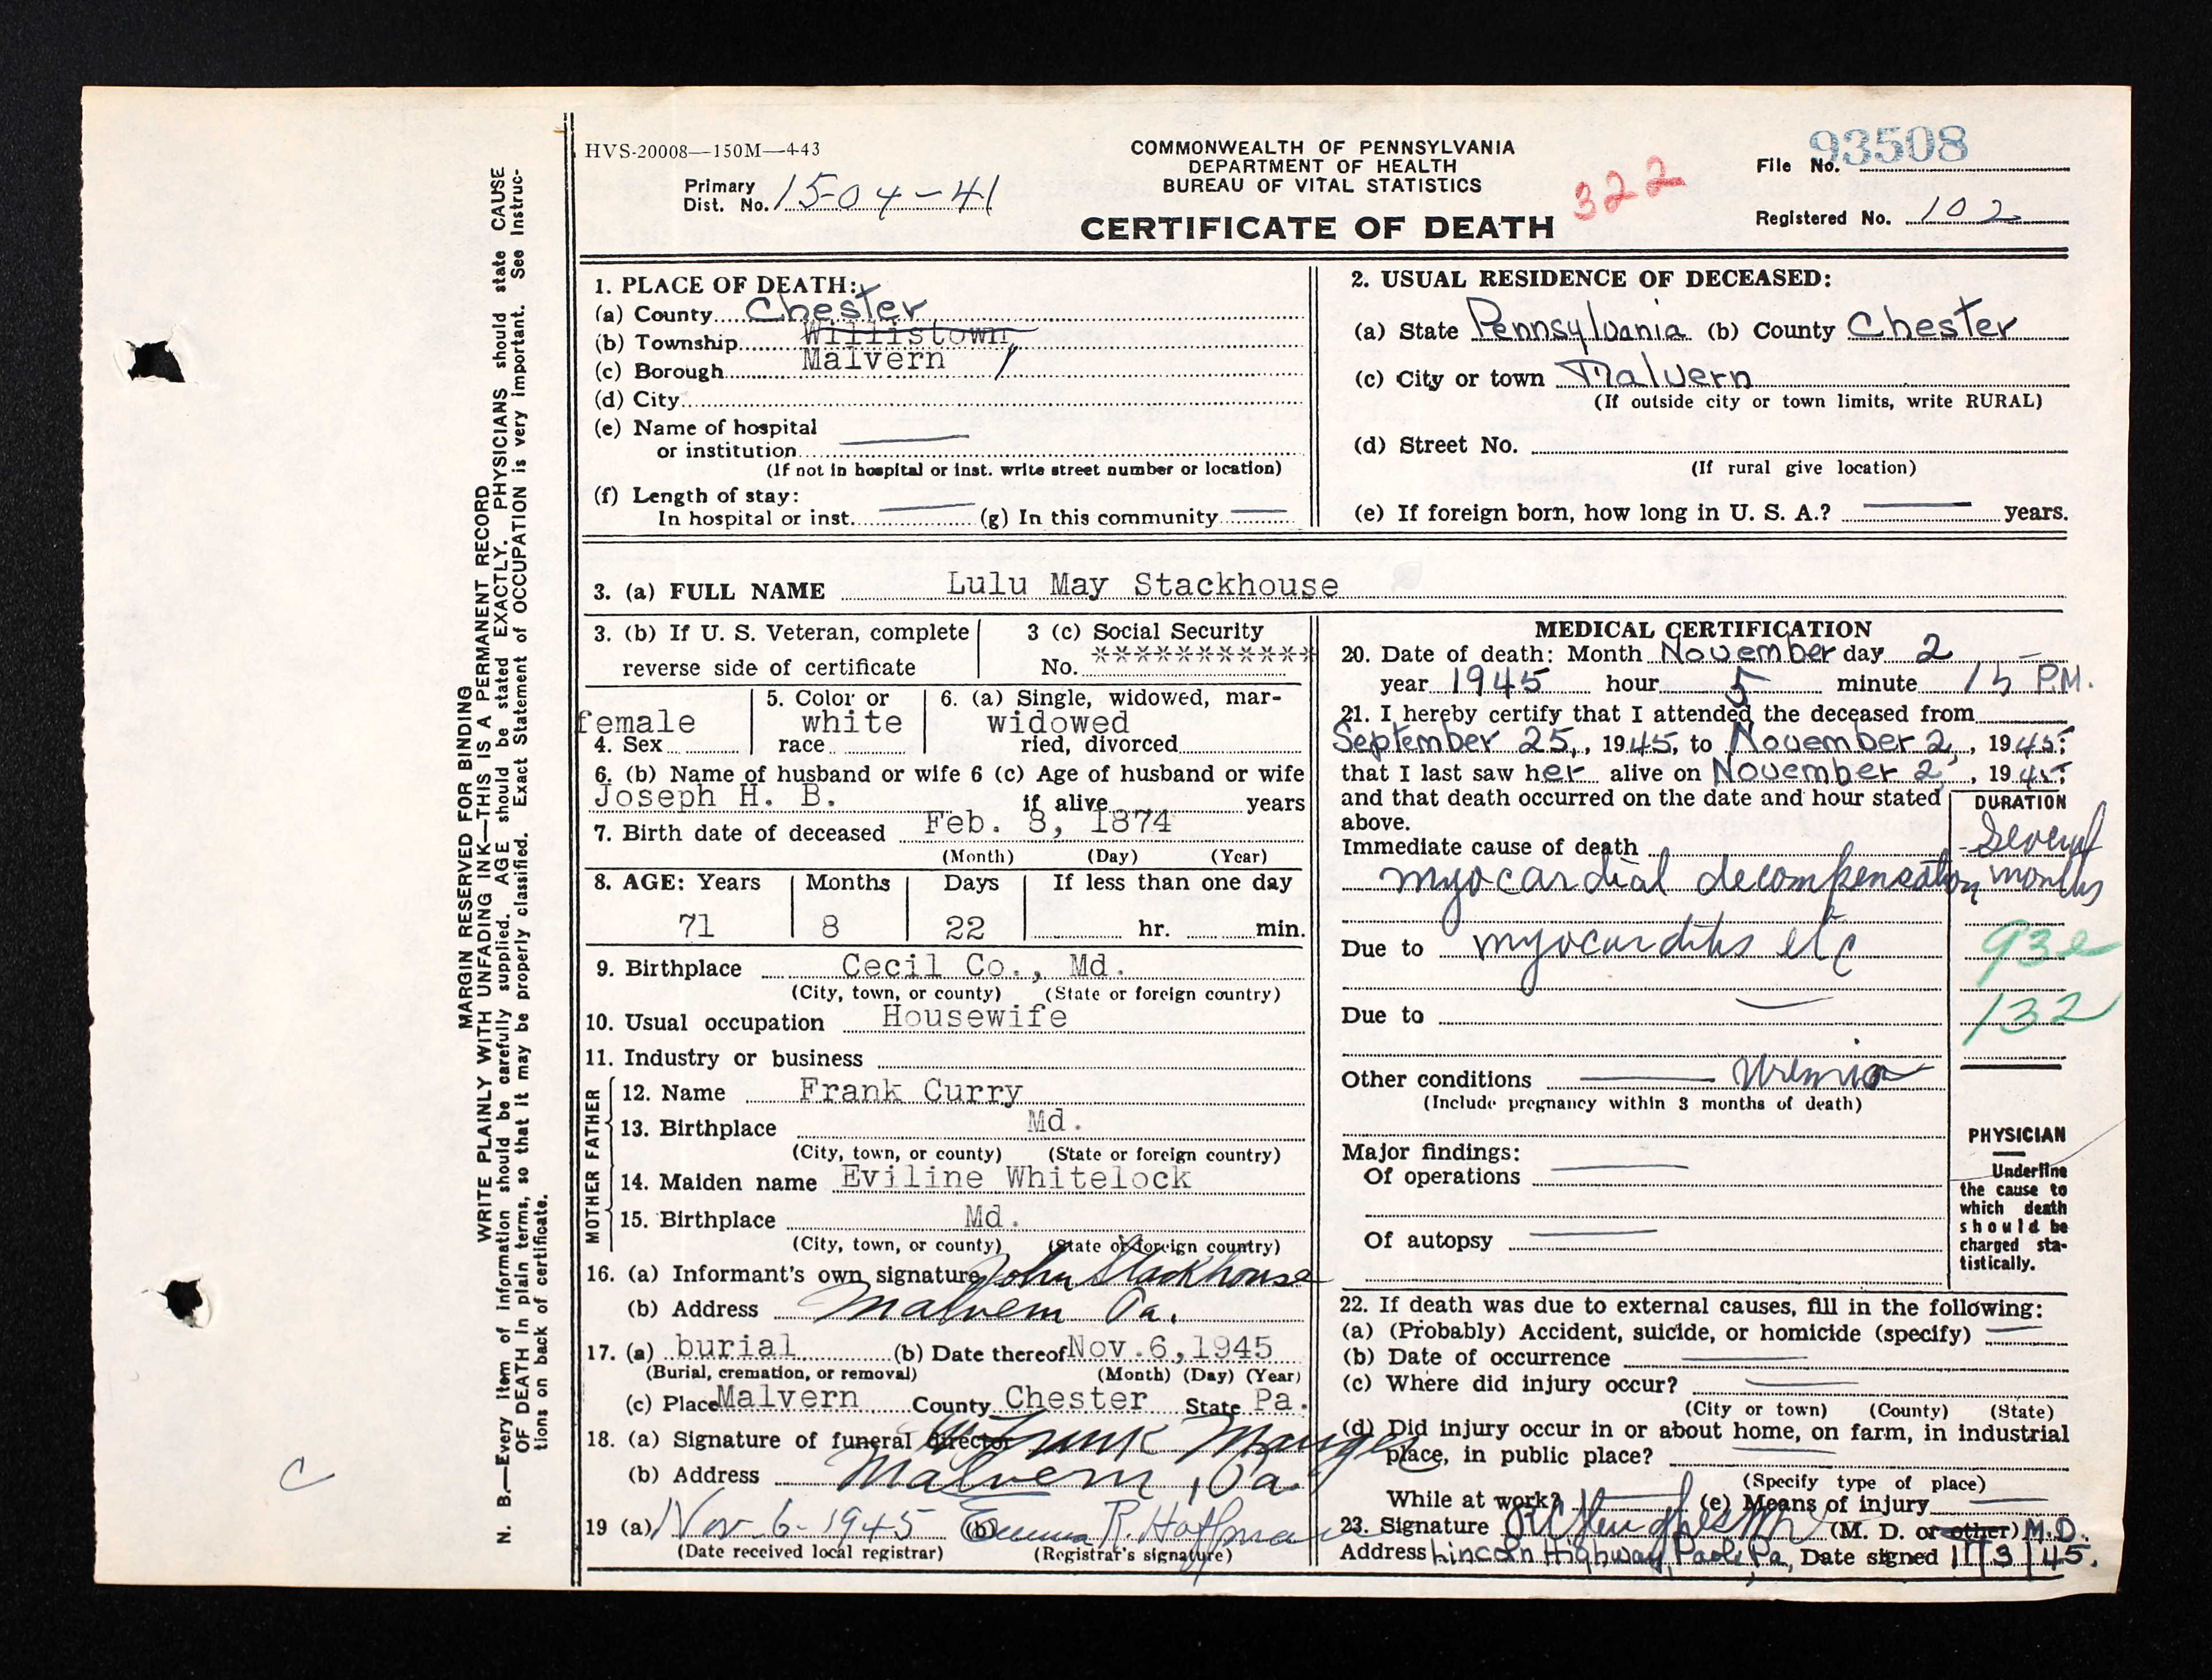 HVS-20008—150M—4-43
COMMONWEALTH OF PENNSYLVANIA
DEPARTMENT OF HEALTH
BUREAU OF VITAL STATISTICS
CERTIFICATE OF DEATH
322
Primary
Dist. No. 15-04-41
File No. 93508
Registered No. 102
MARGIN RESERVED FOR BINDING
WRITE PLAINLY WITH UNFADING INK—THIS IS A PERMANENT RECORD
N. B.—Every item of information should be carefully supplied. AGE should be stated EXACTLY. PHYSICIANS should state CAUSE
OF DEATH in plain terms, so that it may be properly classified. Exact Statement of OCCUPATION is very important. See Instruc-
tions on back of certificate.
C
1. PLACE OF DEATH:
(a) County Chester
(b) Township Willistown
(c) Borough Malvern
(d) City
(e) Name of hospital
or institution
(If not in hospital or inst. write street number or location)
(f) Length of stay:
In hospital or inst. (g) In this community
2. USUAL RESIDENCE OF DECEASED:
(a) State Pennsylvania (b) County Chester
(c) City or town Malvern
(If outside city or town limits, write RURAL)
(d) Street No.
(If rural give location)
(e) If foreign born, how long in U. S. A.? years.
3. (a) FULL NAME Lulu May Stackhouse
3. (b) If U. S. Veteran, complete
reverse side of certificate
3 (c) Social Security
No. ***********
female
4. Sex
5. Color or
white
race
6. (a) Single, widowed, mar-
widowed
ried, divorced
6. (b) Name of husband or wife 6 (c) Age of husband or wife
Joseph H. B. if alive years
7. Birth date of deceased Feb. 8, 1874
(Month) (Day) (Year)
8. AGE: Years Months Days If less than one day
71 8 22 hr. min.
9. Birthplace Cecil Co., Md.
(City, town, or county) (State or foreign country)
10. Usual occupation Housewife
11. Industry or business
FATHER
12. Name Frank Curry
13. Birthplace Md.
(City, town, or county) (State or foreign country)
MOTHER
14. Maiden name Eviline Whitelock
15. Birthplace Md.
(City, town, or county) (State or foreign country)
16. (a) Informant's own signature John Stackhouse
(b) Address Malvern Pa.
17. (a) burial (b) Date thereof Nov.6,1945
(Burial, cremation, or removal) (Month) (Day) (Year)
(c) Place Malvern County Chester State Pa.
18. (a) Signature of funeral director Frank Mauger
(b) Address Malvern, Pa.
19 (a) Nov-6-1945 (b) Emma R. Hoffman
(Date received local registrar) (Registrar's signature)
MEDICAL CERTIFICATION
20. Date of death: Month November day 2
year 1945 hour 5 minute 15 P.M.
21. I hereby certify that I attended the deceased from
September 25, 1945, to November 2, 1945;
that I last saw her alive on November 2, 1945;
and that death occurred on the date and hour stated
above.
DURATION
Immediate cause of death Several
myocardial decompensation months
Due to myocarditis etc
93e
Due to
132
Other conditions Uremia
(Include pregnancy within 3 months of death)
Major findings:
Of operations
Of autopsy
PHYSICIAN
Underline
the cause to
which death
should be
charged sta-
tistically.
22. If death was due to external causes, fill in the following:
(a) (Probably) Accident, suicide, or homicide (specify)
(b) Date of occurrence
(c) Where did injury occur?
(City or town) (County) (State)
(d) Did injury occur in or about home, on farm, in industrial
place, in public place?
(Specify type of place)
While at work? (e) Means of injury
23. Signature (M. D. or other) M.D.
Address Lincoln Highway, Paoli, Pa, Date signed 11/3/45.